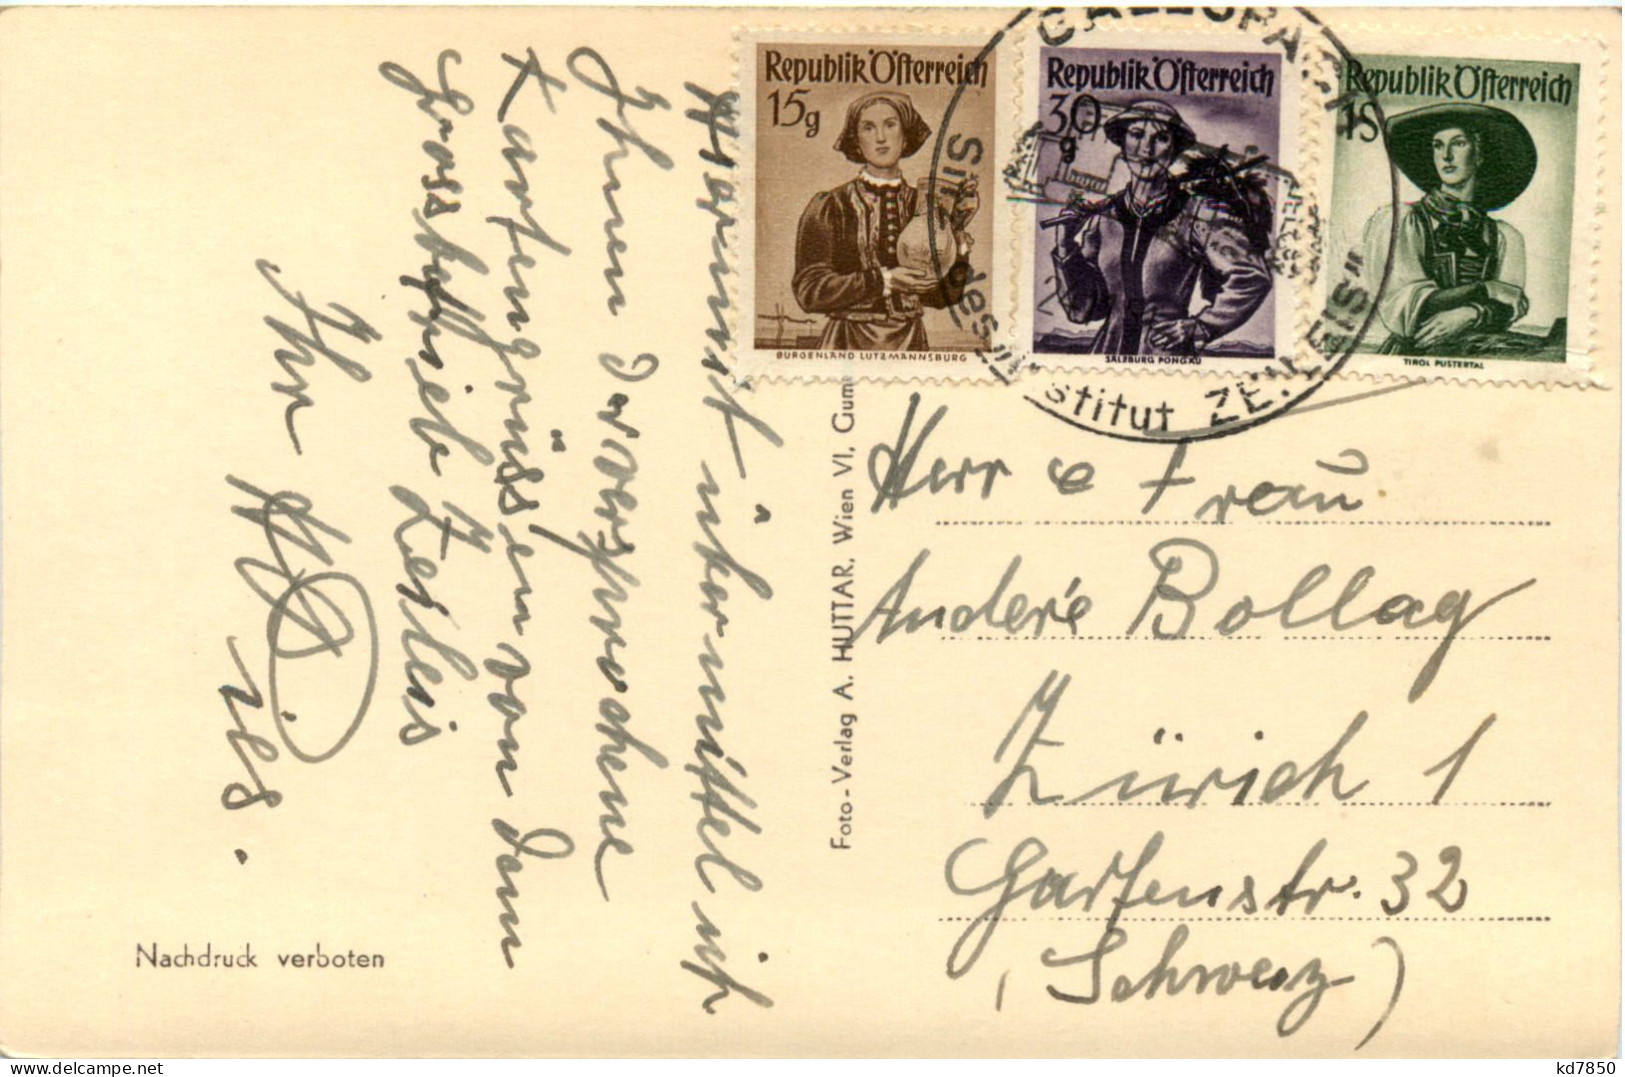 Republik Österreich
15g
BURGENLAND LUTZMANNSBURG
Republik Österreich
30 g
SALZBURG PONGAU
Republik Österreich
1S
TIROL PUSTERTAL
GALLSPACH
Sitz des Institut ZEILEIS
Hiermit übermittel ich
Ihnen d versprochene
Kartengrüsse von dem
Grossbetrieb Zeileis
Ihr
Foto-Verlag A. HUTTAR, Wien VI, Gum
Nachdruck verboten
Herr e Frau
Andere Bollag
Zürich 1
Gartenstr. 32
(Schweiz)
kd7850